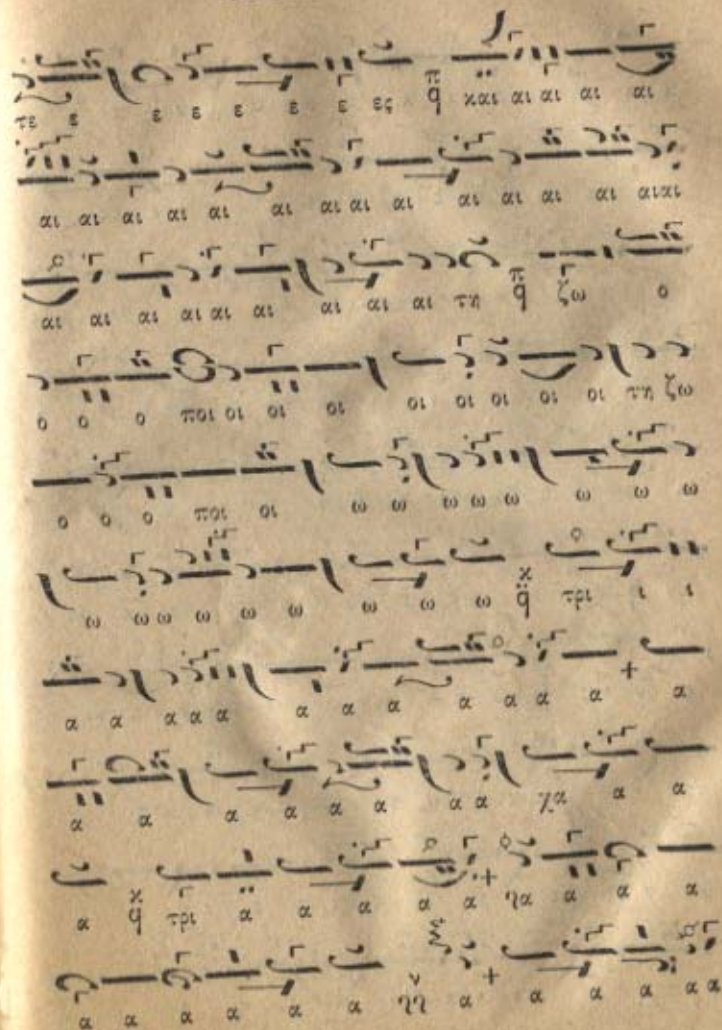 τε ε ε ε ε ε ε ες π q και αι αι αι αι
αι αι αι αι αι αι αι αι αι αι αι αι αι αι αι
αι αι αι αι αι αι αι αι αι τη π q ζω ο
ο ο ο ποι οι οι οι οι οι οι οι οι τη ζω
ο ο ο ποι οι ω ω ω ω ω ω ω ω
ω ω ω ω ω ω ω ω ω κ q τρι ι ι
α α α α α α α α α α α α α
α α α α α α α α χα α α
α κ q τρι α α α α α λα α α α
α α α α α α α α α α α α